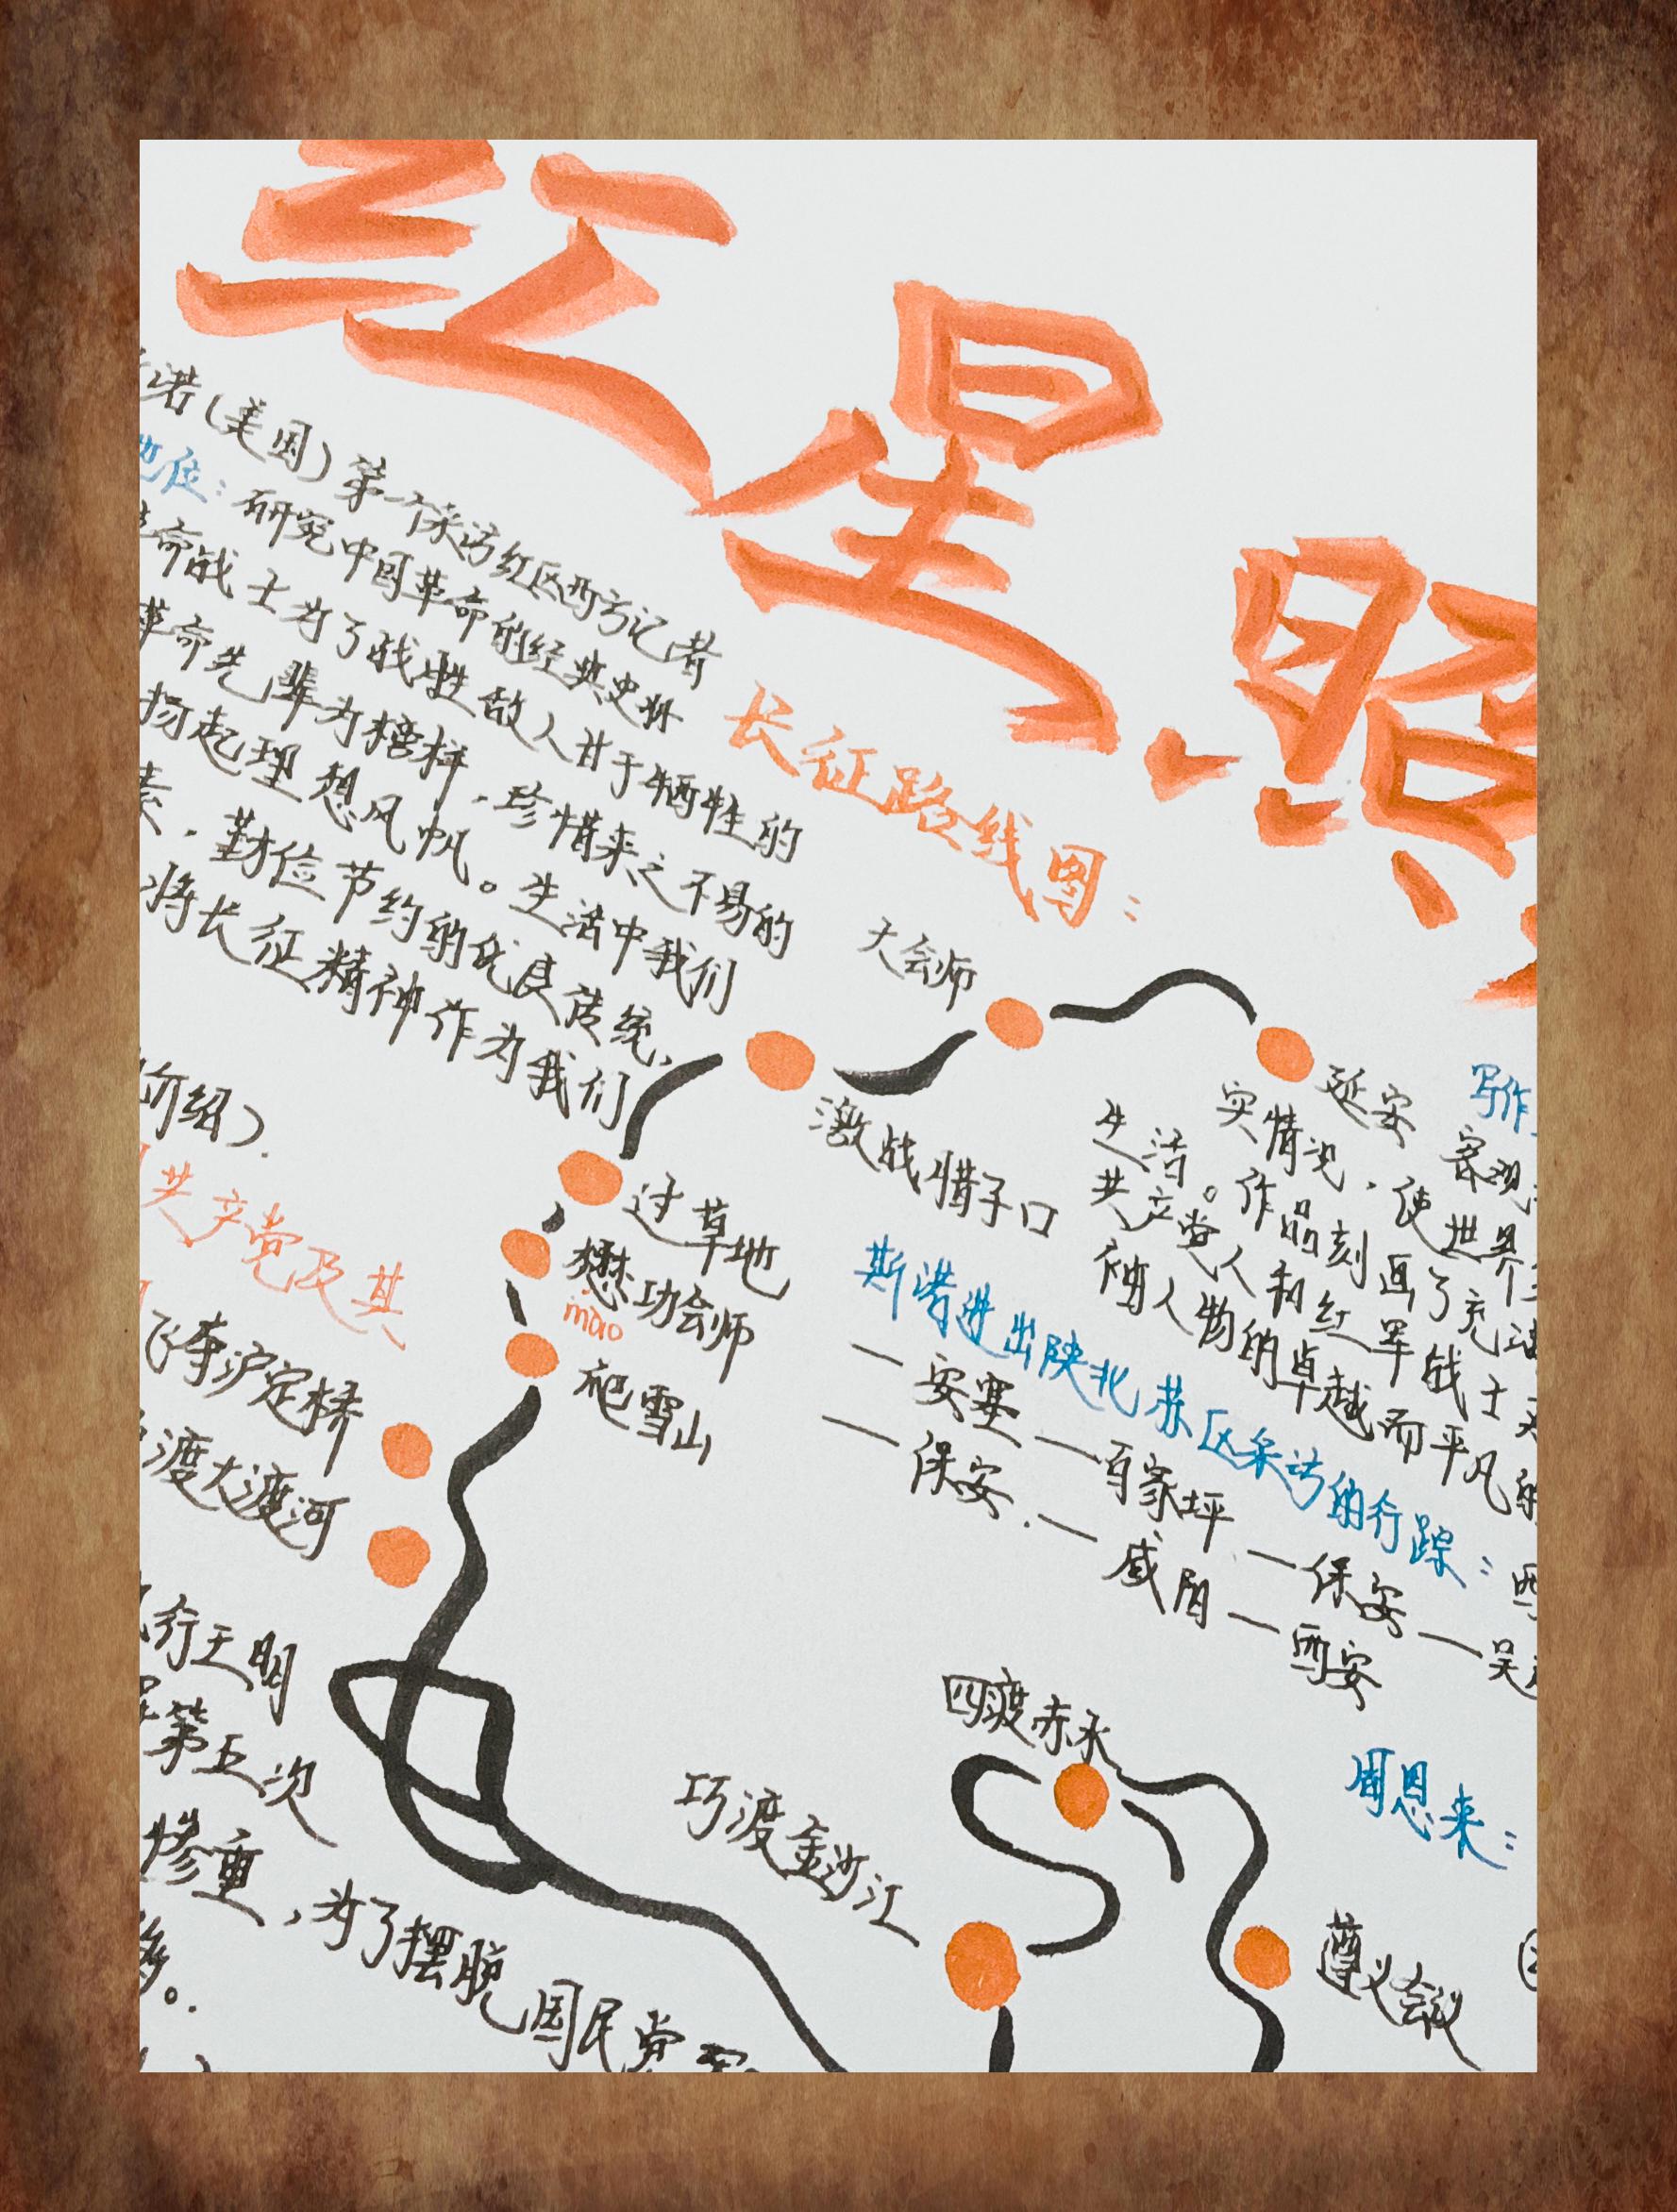 红星照
诺(美国)第一个采访红区西方记者
地位:研究中国革命的经典史料
革命战士为了战胜敌人甘于牺牲的
革命先辈为榜样,珍惜来之不易的
扬起理想风帆。生活中我们
素,勤俭节约的优良传统,
将长征精神作为我们
介绍).
长征路线图:
大会师
延安
激战腊子口
过草地
懋功会师
mao
爬雪山
共产党及其
飞夺泸定桥
渡大渡河
行王明
第五次
惨重,为了摆脱国民党军
移。
写作
客观
实情况,使世界
生活。作品刻画了充满
共产党人和红军战士
袖人物的卓越而平凡的
斯诺进出陕北苏区采访的行踪:西
—安塞—百家坪—保安—吴
—保安.—咸阳—西安
四渡赤水
巧渡金沙江
周恩来:
遵义会议